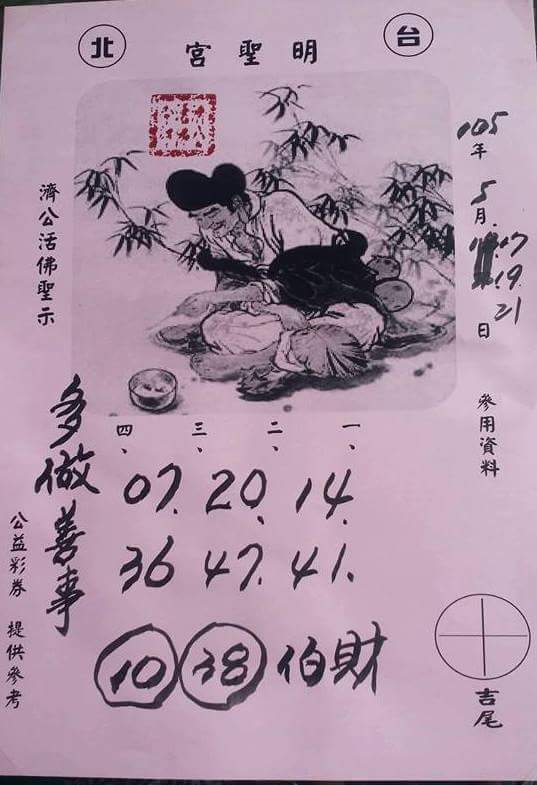 台北
明聖宮
105年5月17.19.21日
參用資料
濟公活佛聖示
一、二、三、四、
14.20.07.
41.47.36
財伯 38 10
多做善事
吉尾
公益彩券 提供參考